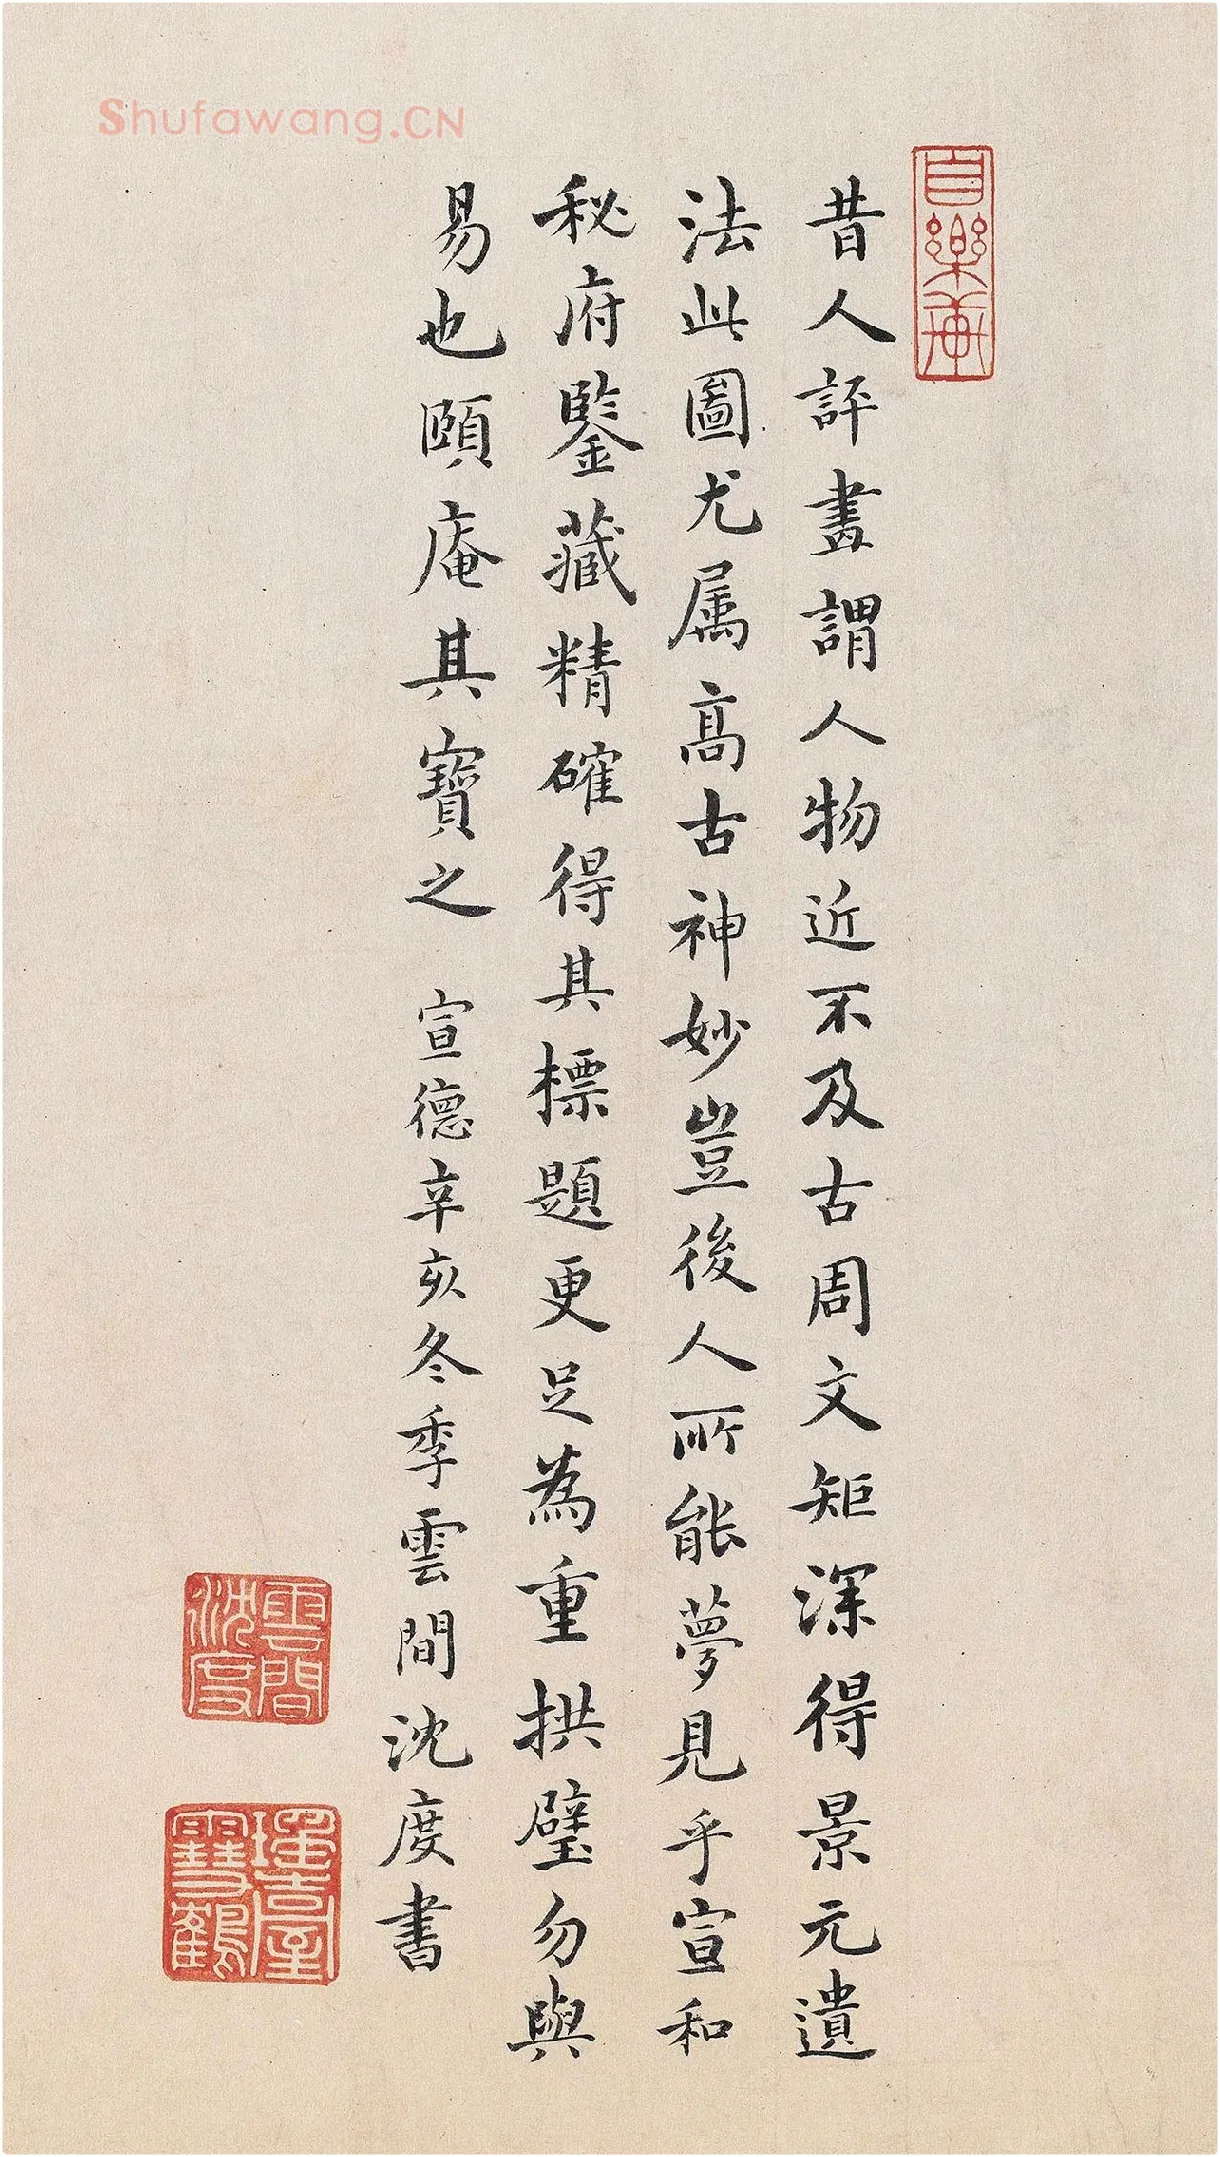 Shufawang.CN
自樂軒
昔人評畫謂人物近不及古周文矩深得景元遺
法此圖尤属髙古神妙豈後人所能夢見乎宣和
秘府鑒藏精確得其標題更足為重拱璧勿與
易也頤庵其寶之 宣德辛亥冬季雲間沈度書
雲間沈度